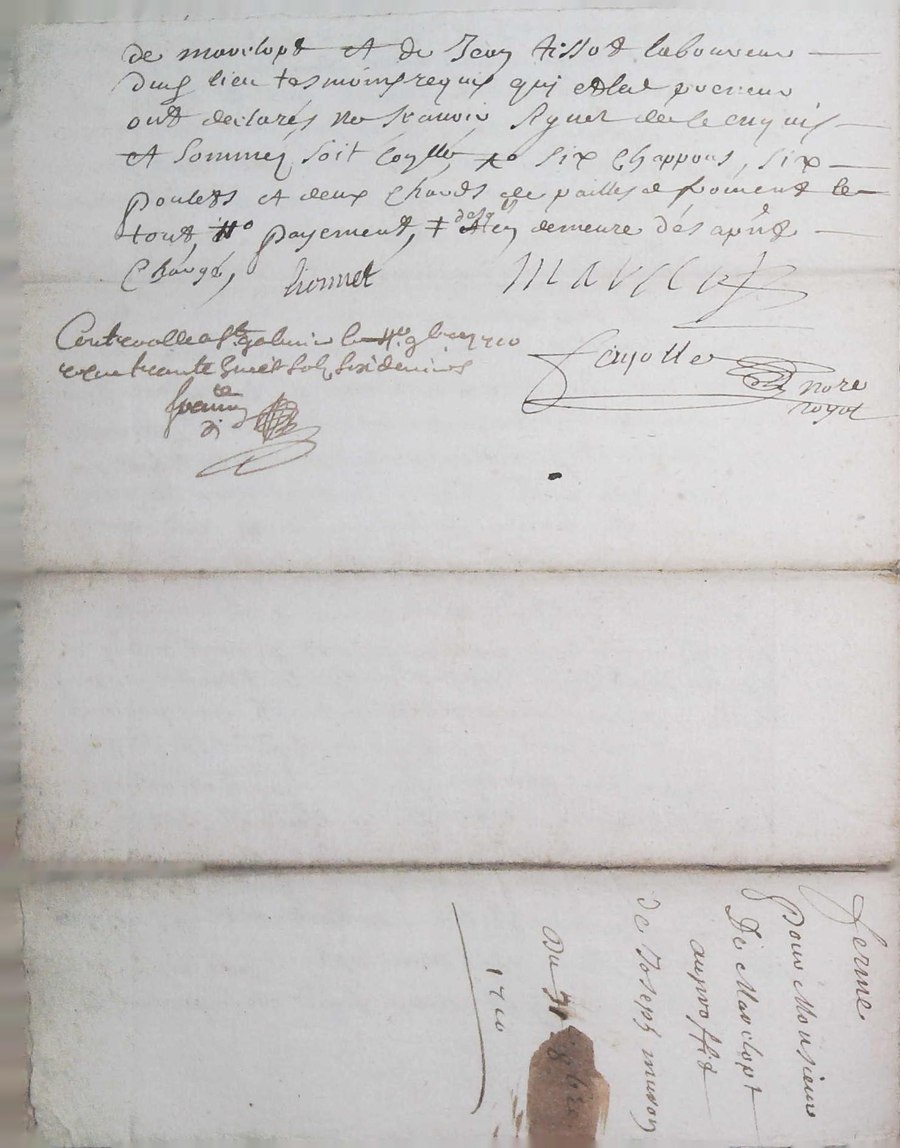 de marclopt et de Jean tissot laboureur
dud lieu tesmoins requis qui et led preneur
ont declarés ne scavoir signer de ce enquis
et sommés soit six chappons, six
poulets et deux chards de pailles de froment le
tout, payement, demeure des apnt
chargé, Lionnet MARCLOPT
Controllé a St galmier le 4e 9bre 1710
receu trente huict sols six deniers
fayolle
nore
royal
ferme
pour Monsieur
De Marclopt
au proffit
de Joseph muron
Du 31 8bre
1710